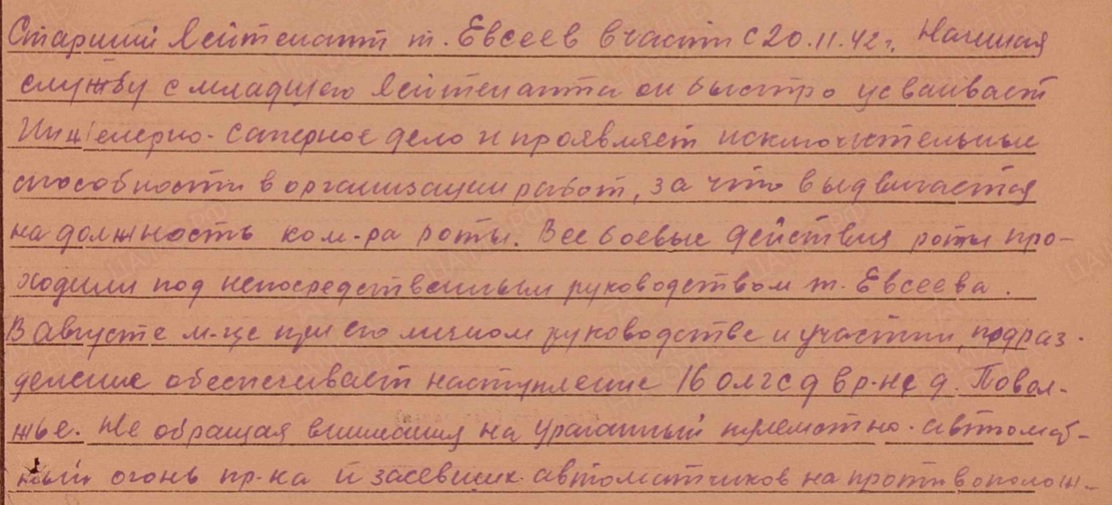 Старший лейтенант т. Евсеев в части с 20.11.42 г. Начиная
службу с младшего лейтенанта он быстро усваивает
Инженерно-саперное дело и проявляет исключительные
способности в организации работ, за что выдвигается
на должность ком-ра роты. Все боевые действия роты про-
ходили под непосредственным руководством т. Евсеева.
В августе м-це при его личном руководстве и участии, подраз-
деление обеспечивает наступление 16 олгсд в р-не д. Повол-
жье. Не обращая внимания на ураганный пулеметно-автомат-
ный огонь пр-ка и засевших автоматчиков на противополож-